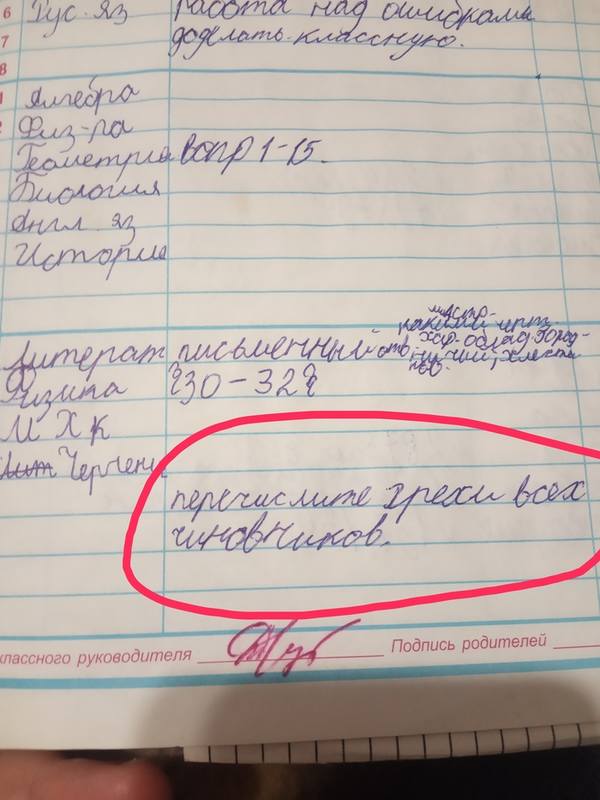 6 Рус. яз работа над ошибками
7 доделать классную.
8
Алгебра
Физ-ра
Геометрия Вопр 1-15.
Биология
Англ. яз
История
какими черт.
хар-облад Город-
Литерат письменный отв. ничий, Хлеста
ков.
Физика §30-32§
МХК
Лит Черчени
перечислите грехи всех
чиновников.
классного руководителя Подпись родителей